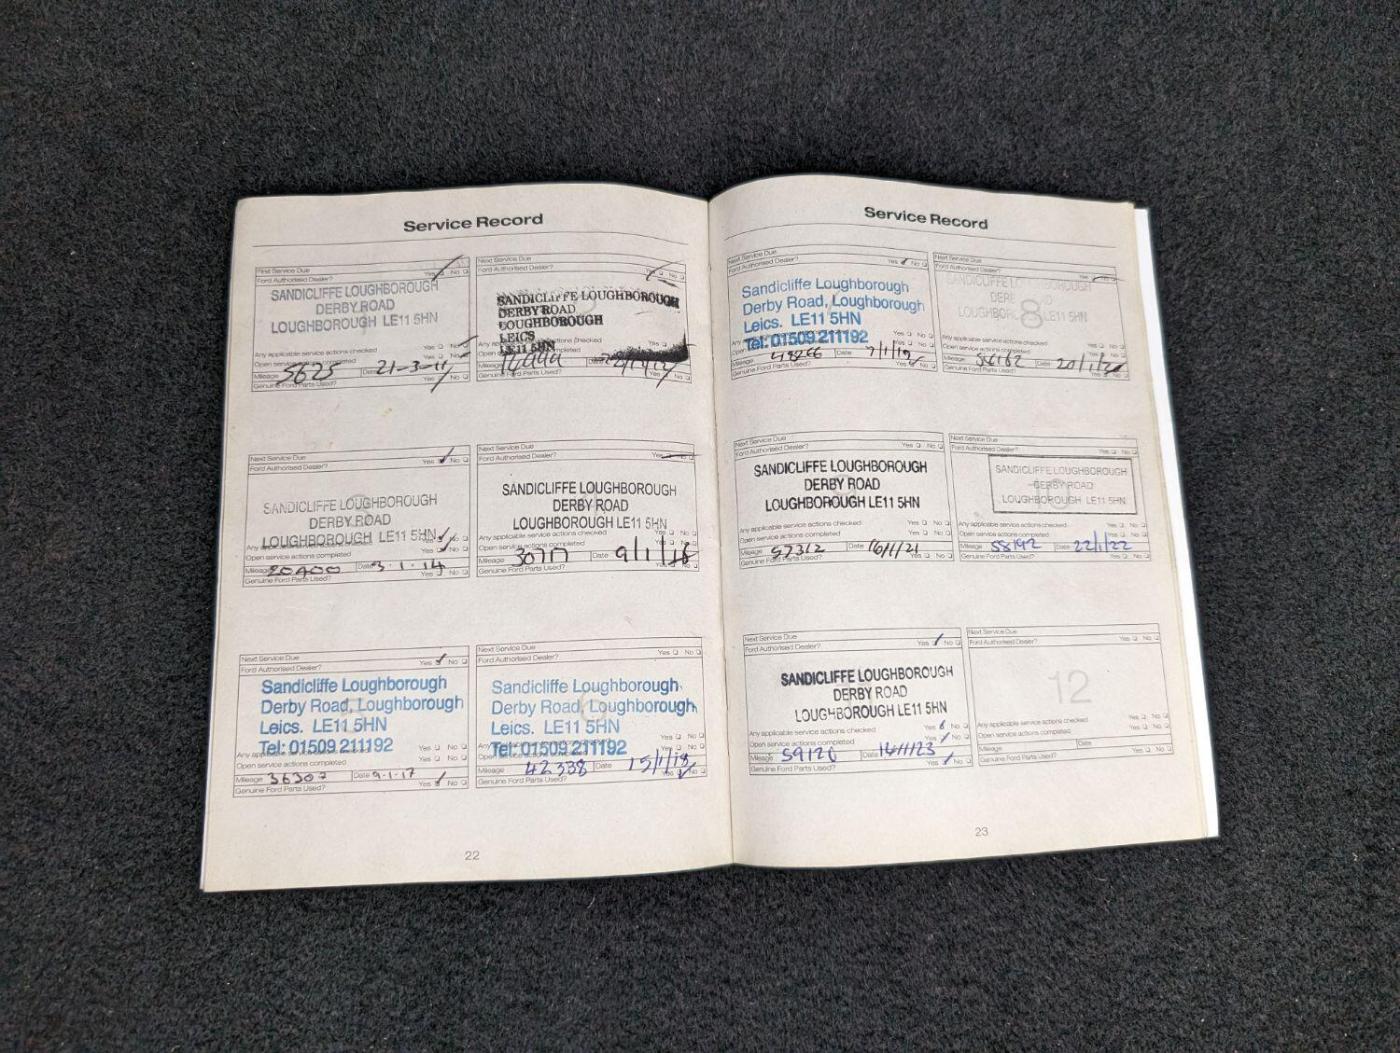 Service Record
First Service Due
Ford Authorised Dealer? Yes No
SANDICLIFFE LOUGHBOROUGH
DERBY ROAD
LOUGHBOROUGH LE11 5HN
Any applicable service actions checked Yes No
Open service actions completed Yes No
Mileage 5625 Date 21-3-11
Genuine Ford Parts Used? Yes No
Next Service Due
Ford Authorised Dealer? Yes No
SANDICLIFFE LOUGHBOROUGH
DERBY ROAD
LOUGHBOROUGH
LEICS
LE11 5HN
Genuine Ford Parts Used? Yes No
Next Service Due
Ford Authorised Dealer? Yes No
SANDICLIFFE LOUGHBOROUGH
DERBY ROAD
LOUGHBOROUGH LE11 5HN
Open service actions completed
Mileage 20400 Date 3.1.14
Genuine Ford Parts Used? Yes No
Next Service Due
Ford Authorised Dealer? Yes No
SANDICLIFFE LOUGHBOROUGH
DERBY ROAD
LOUGHBOROUGH LE11 5HN
Any applicable service actions checked Yes No
Open service actions completed Yes No
Mileage Date 9/1/16
Genuine Ford Parts Used? Yes No
Next Service Due
Ford Authorised Dealer? Yes No
Sandicliffe Loughborough
Derby Road, Loughborough
Leics. LE11 5HN
Tel: 01509 211192
Yes No
Open service actions completed Yes No
Mileage 36307 Date 9.1.17
Genuine Ford Parts Used? Yes No
Next Service Due
Ford Authorised Dealer? Yes No
Sandicliffe Loughborough
Derby Road, Loughborough
Leics. LE11 5HN
Tel: 01509 211192
Yes No
Open service actions completed Yes No
Mileage 42338 Date 15/1/18
Genuine Ford Parts Used? Yes No
22
Service Record
Next Service Due
Ford Authorised Dealer? Yes No
Sandicliffe Loughborough
Derby Road, Loughborough
Leics. LE11 5HN
Tel: 01509 211192
Mileage 48266 Date 7/1/19
Genuine Ford Parts Used? Yes No
Next Service Due
Ford Authorised Dealer?
SANDICLIFFE LOUGHBOROUGH
8
LE11 5HN
Any applicable service actions checked Yes No
Open service actions completed Yes No
Mileage Date
Genuine Ford Parts Used? Yes No
Next Service Due
Ford Authorised Dealer? Yes No
SANDICLIFFE LOUGHBOROUGH
DERBY ROAD
LOUGHBOROUGH LE11 5HN
Any applicable service actions checked Yes No
Open service actions completed Yes No
Mileage 57312 Date 16/1/21
Genuine Ford Parts Used? Yes No
Next Service Due
Ford Authorised Dealer? Yes No
SANDICLIFFE LOUGHBOROUGH
DERBY ROAD
LOUGHBOROUGH LE11 5HN
Any applicable service actions checked Yes No
Open service actions completed Yes No
Mileage 58192 Date 22/1/22
Genuine Ford Parts Used? Yes No
Next Service Due
Ford Authorised Dealer? Yes No
SANDICLIFFE LOUGHBOROUGH
DERBY ROAD
LOUGHBOROUGH LE11 5HN
Any applicable service actions checked Yes No
Open service actions completed Yes No
Mileage 59120 Date
Genuine Ford Parts Used? Yes No
Next Service Due
Ford Authorised Dealer? Yes No
12
Any applicable service actions checked Yes No
Open service actions completed Yes No
Mileage Date
Genuine Ford Parts Used? Yes No
23